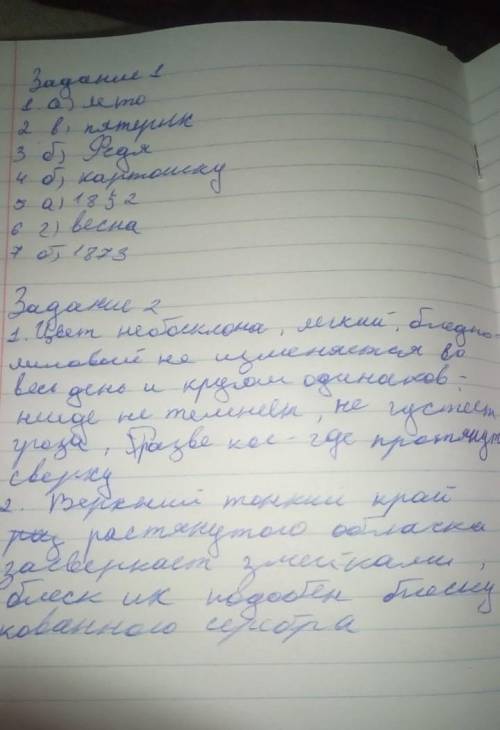 Задание 1
1 а) лето
2 в) пятерик
3 б) Федя
4 б) картошку
5 а) 1852
6 г) весна
7 б) 1873
Задание 2
1. Цвет небосклона, легкий, бледно-
лиловый не изменяется во
весь день и кругом одинаков;
нигде не темнеет, не густеет
гроза, разве кое-где протянут
сверху
2. Верхний тонкий край
раз растянутого облачка
засверкает змейками,
блеск их подобен блеску
кованного серебра